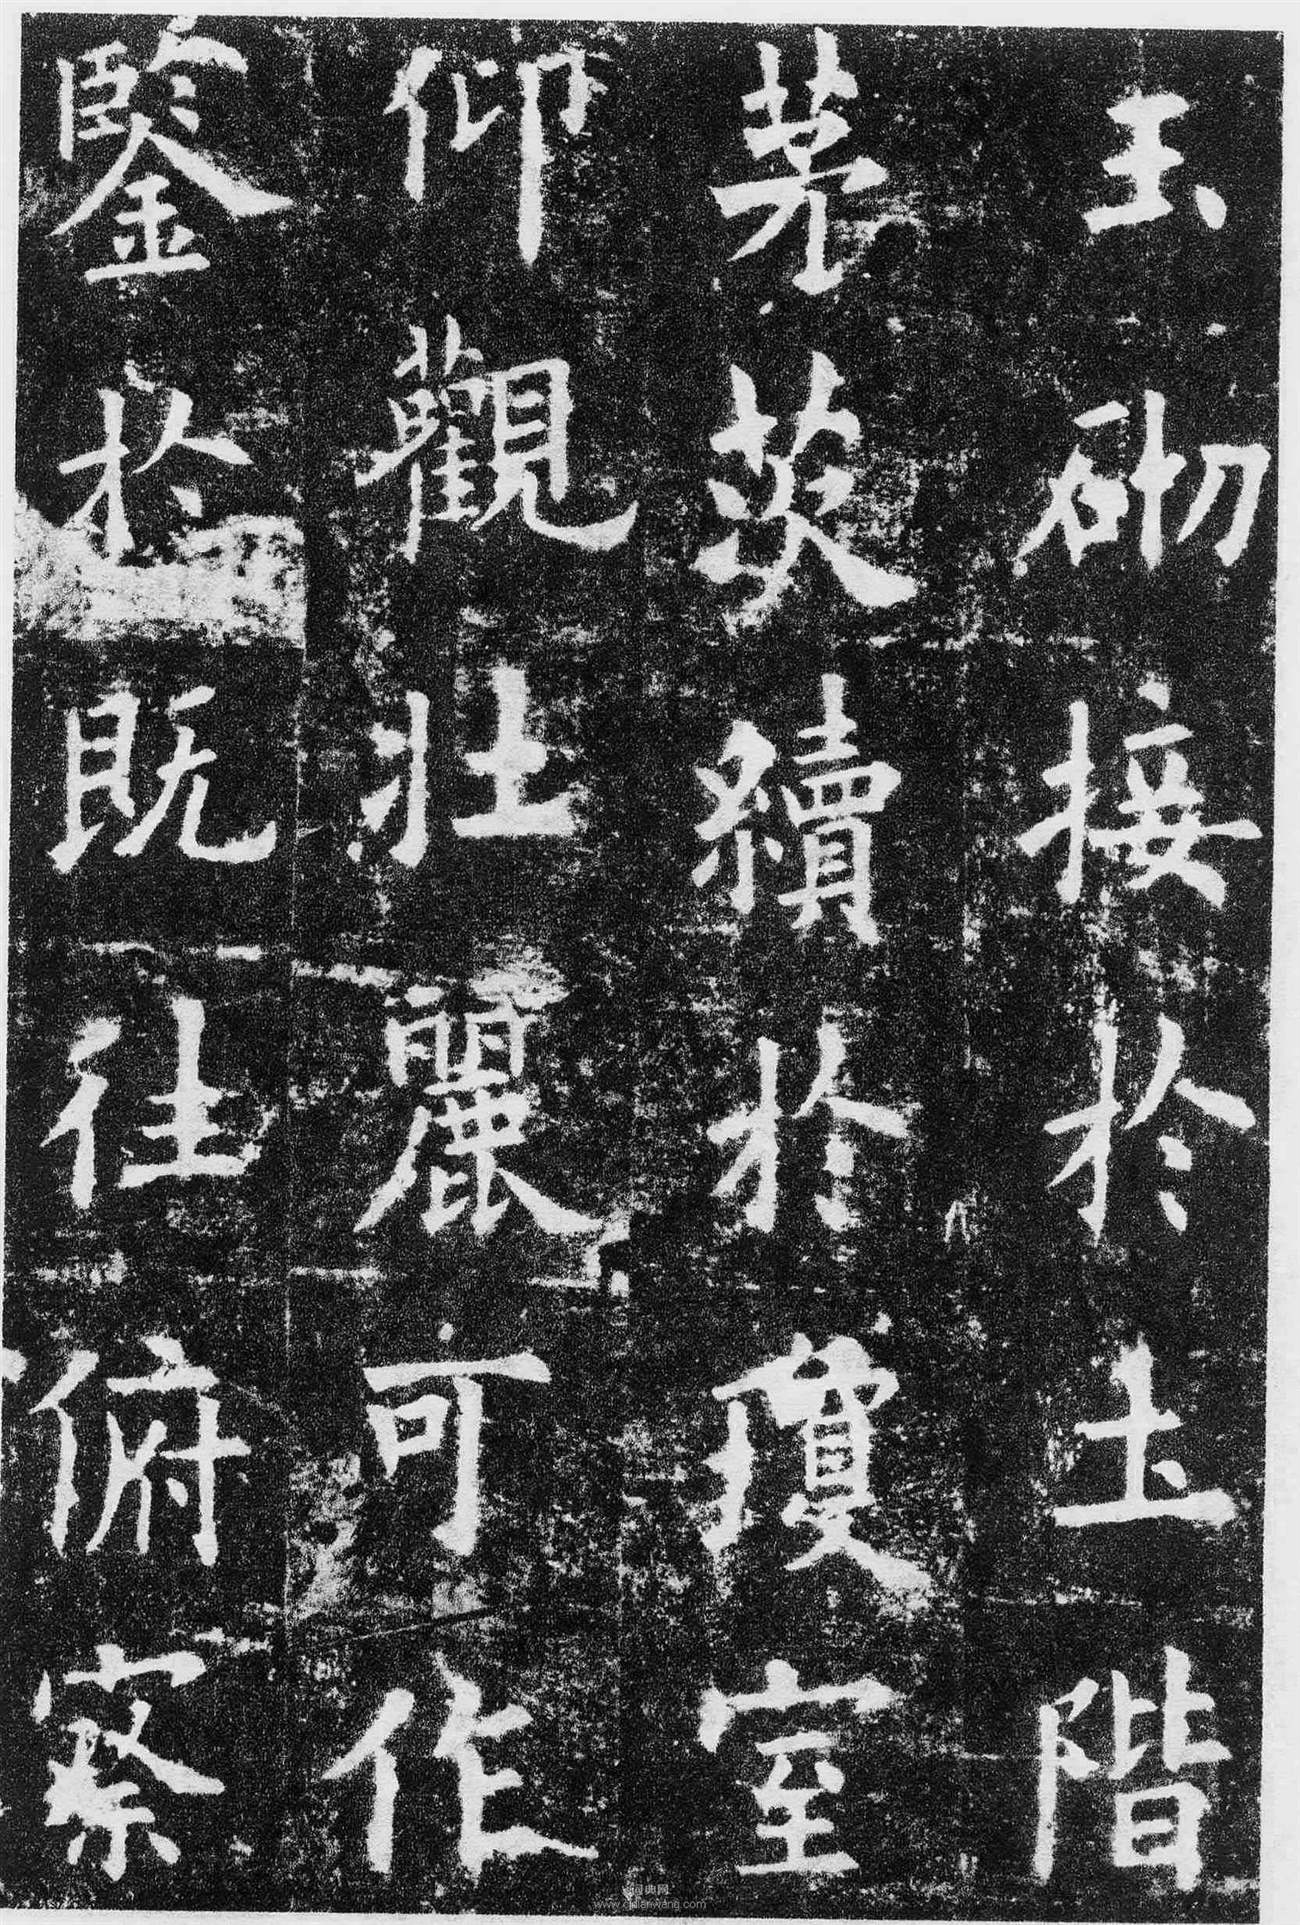 玉砌接於土階
茅茨續於瓊室
仰觀壯麗可作
鑒於既往俯察
www.cidianwang.com